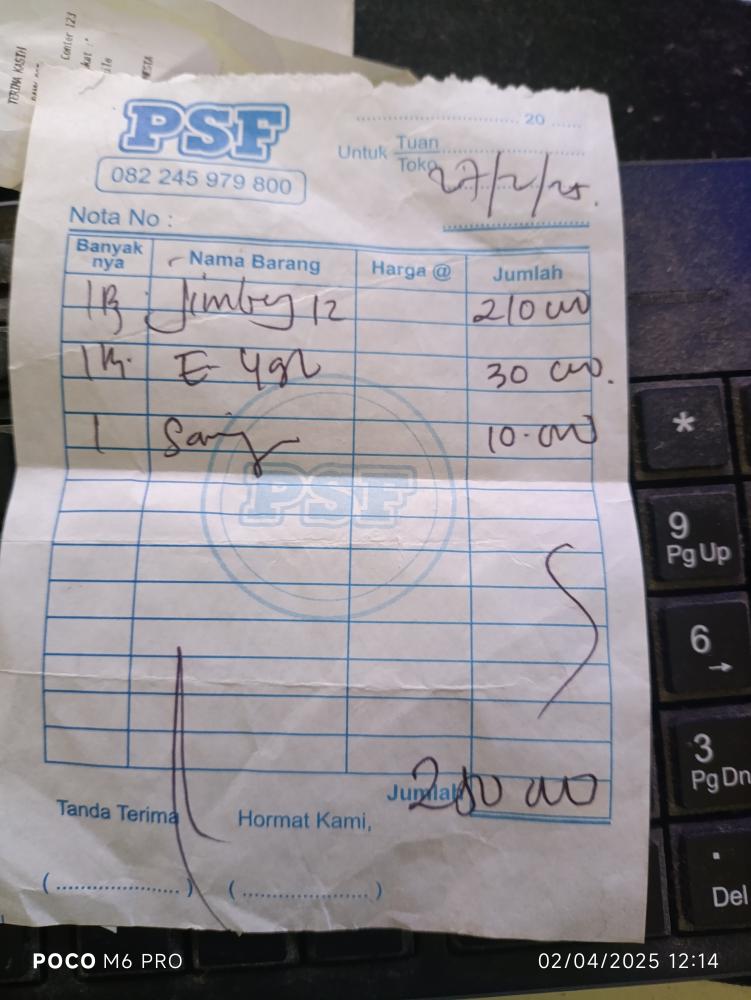 TERIMA KASIH
Center 123
PSF
082 245 979 800
20
Untuk Tuan
Toko
27/2/25.
Nota No :
Banyak nya Nama Barang Harga @ Jumlah
Jimbey 12 210 000
E 30 000.
1 10.000
PSF
Jumlah 250 000
Tanda Terima Hormat Kami,
(....................) (....................)
*
9
PgUp
6
→
3
PgDn
.
Del
POCO M6 PRO 02/04/2025 12:14